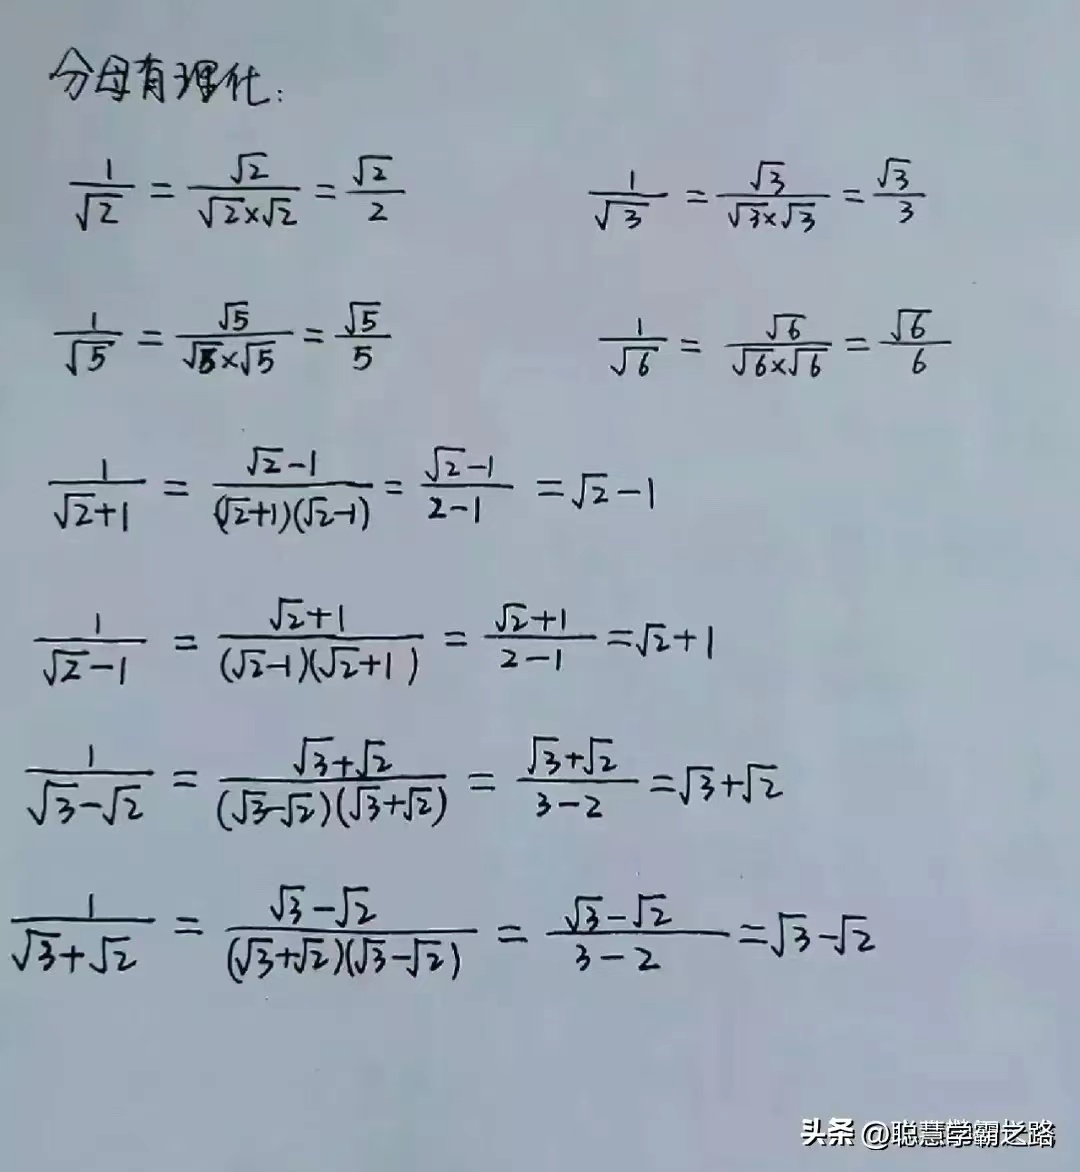 分母有理化:
1/√2 = √2/(√2×√2) = √2/2
1/√3 = √3/(√3×√3) = √3/3
1/√5 = √5/(√5×√5) = √5/5
1/√6 = √6/(√6×√6) = √6/6
1/(√2+1) = (√2-1)/((√2+1)(√2-1)) = (√2-1)/(2-1) = √2-1
1/(√2-1) = (√2+1)/((√2-1)(√2+1)) = (√2+1)/(2-1) = √2+1
1/(√3-√2) = (√3+√2)/((√3-√2)(√3+√2)) = (√3+√2)/(3-2) = √3+√2
1/(√3+√2) = (√3-√2)/((√3+√2)(√3-√2)) = (√3-√2)/(3-2) = √3-√2
头条 @聪慧学霸之路